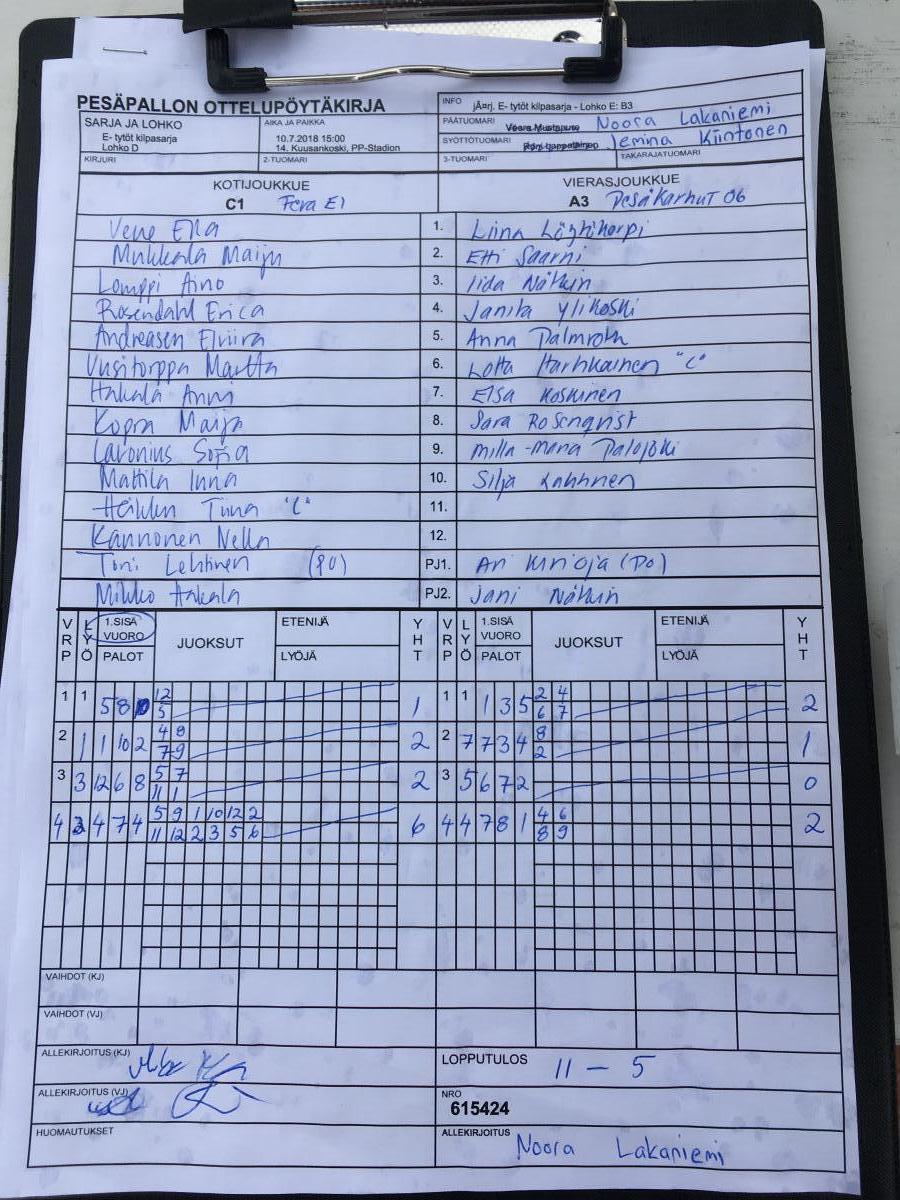 PESÄPALLON OTTELUPÖYTÄKIRJA
INFO jÄ¤rj. E- tytöt kilpasarja - Lohko E: B3
SARJA JA LOHKO
E- tytöt kilpasarja
Lohko D
AIKA JA PAIKKA
10.7.2018 15:00
14. Kuusankoski, PP-Stadion
PÄÄTUOMARI Noora Lakaniemi
SYÖTTÖTUOMARI Jemina Kiintonen
KIRJURI 2-TUOMARI 3-TUOMARI TAKARAJATUOMARI
KOTIJOUKKUE VIERASJOUKKUE
C1 Fera E1 A3 Pesäkarhut 06
Vene Ella 1. Liina Löytihorpi
Mukkala Maiju 2. Etti Saarni
Lomppi Aino 3. Iida Nätkin
Rosendahl Erica 4. Janita Ylikoski
Andreasen Elviira 5. Anna Palmroth
Uusitorppa Martta 6. Lotta "C"
Hakala Anni 7. Elsa Koskinen
Kopra Maija 8. Sara Rosenqvist
Laronius Sofia 9. Milla-Maria Palojoki
Mattila Inna 10. Silja Lahtinen
Tiina "C" 11.
Kannonen Nella 12.
Toni Lehtinen (PJ) PJ1. Ari (PJ)
Mikko Hakala PJ2. Jani Nätkin
VRP LYÖ 1.SISÄ VUORO PALOT JUOKSUT ETENIJÄ LYÖJÄ YHT VRP LYÖ 1.SISÄ VUORO PALOT JUOKSUT ETENIJÄ LYÖJÄ YHT
1 1 5 8 12 1 1 1 1 3 5 2 4 2
5 6 7
2 1 1 10 2 4 8 2 2 7 7 3 4 8 1
7 9 2
3 3 12 6 8 5 7 2 3 5 6 7 2 0
11 1
4 4 7 4 5 9 1 10 12 2 6 4 4 7 8 1 4 6 2
11 12 2 3 5 6 8 9
VAIHDOT (KJ)
VAIHDOT (VJ)
ALLEKIRJOITUS (KJ) LOPPUTULOS 11 – 5
ALLEKIRJOITUS (VJ) NRO
615424
HUOMAUTUKSET ALLEKIRJOITUS Noora Lakaniemi